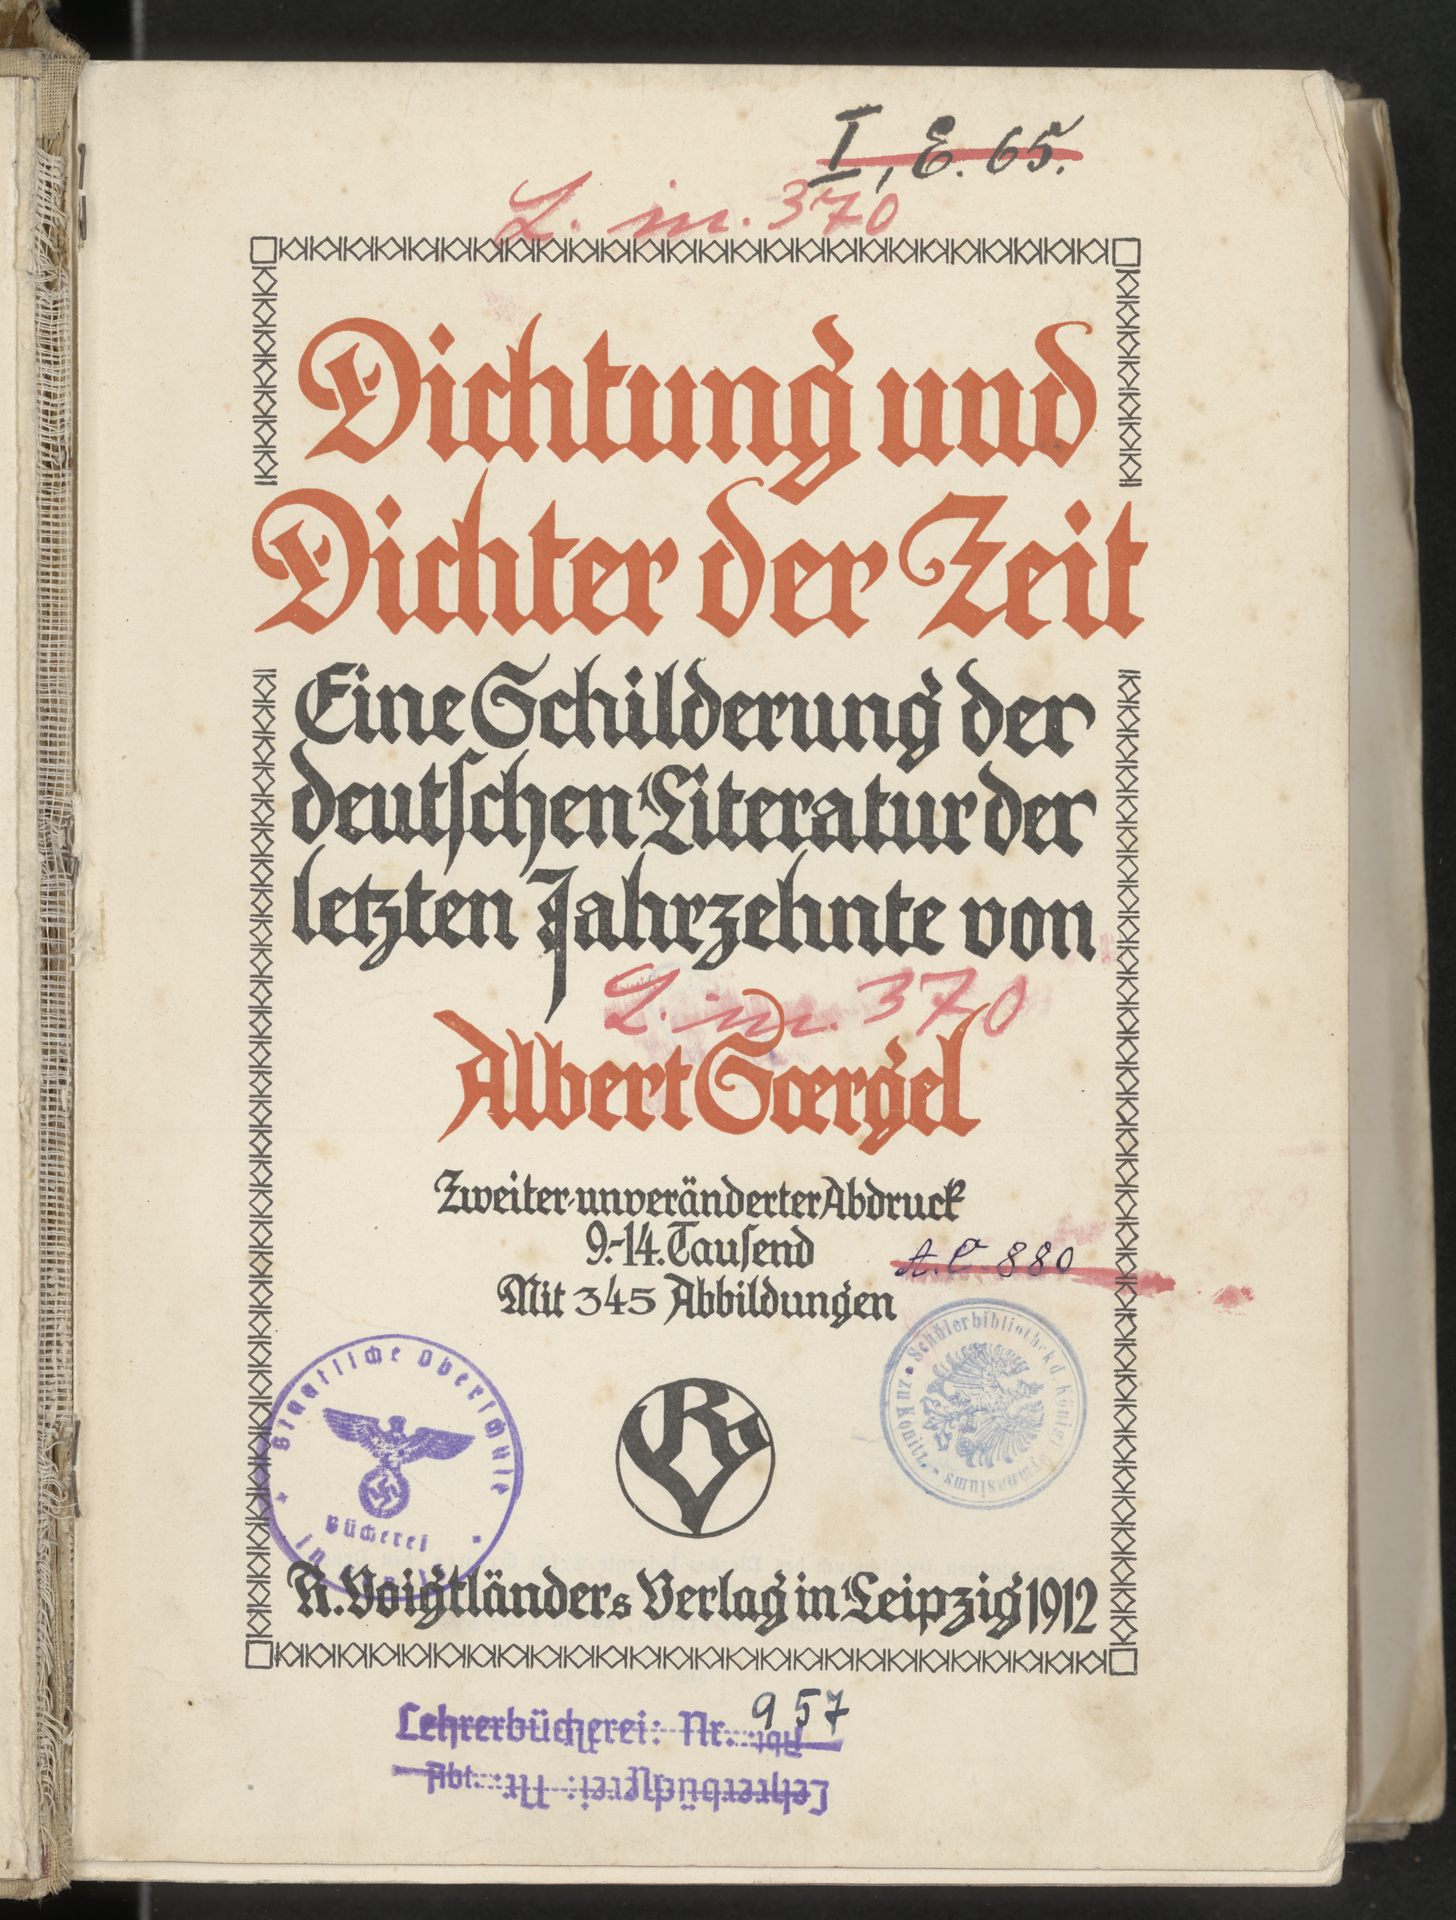 I, E. 65.
L. m. 370
Dichtung und
Dichter der Zeit
Eine Schilderung der
deutſchen Literatur der
letzten Jahrzehnte von
L. m. 370
Albert Sœrgel
Zweiter unveränderter Abdruck
9.-14. Tauſend
Mit 345 Abbildungen
A. C 880
Staatliche Oberschule
Bücherei
in
Schülerbibliothek d. Königl. Gymnasiums
Konitz
RV
R. Voigtländers Verlag in Leipzig 1912
Lehrerbücherei: Nr. 957
Abt.
Lehrerbücherei: Nr.
Abt.